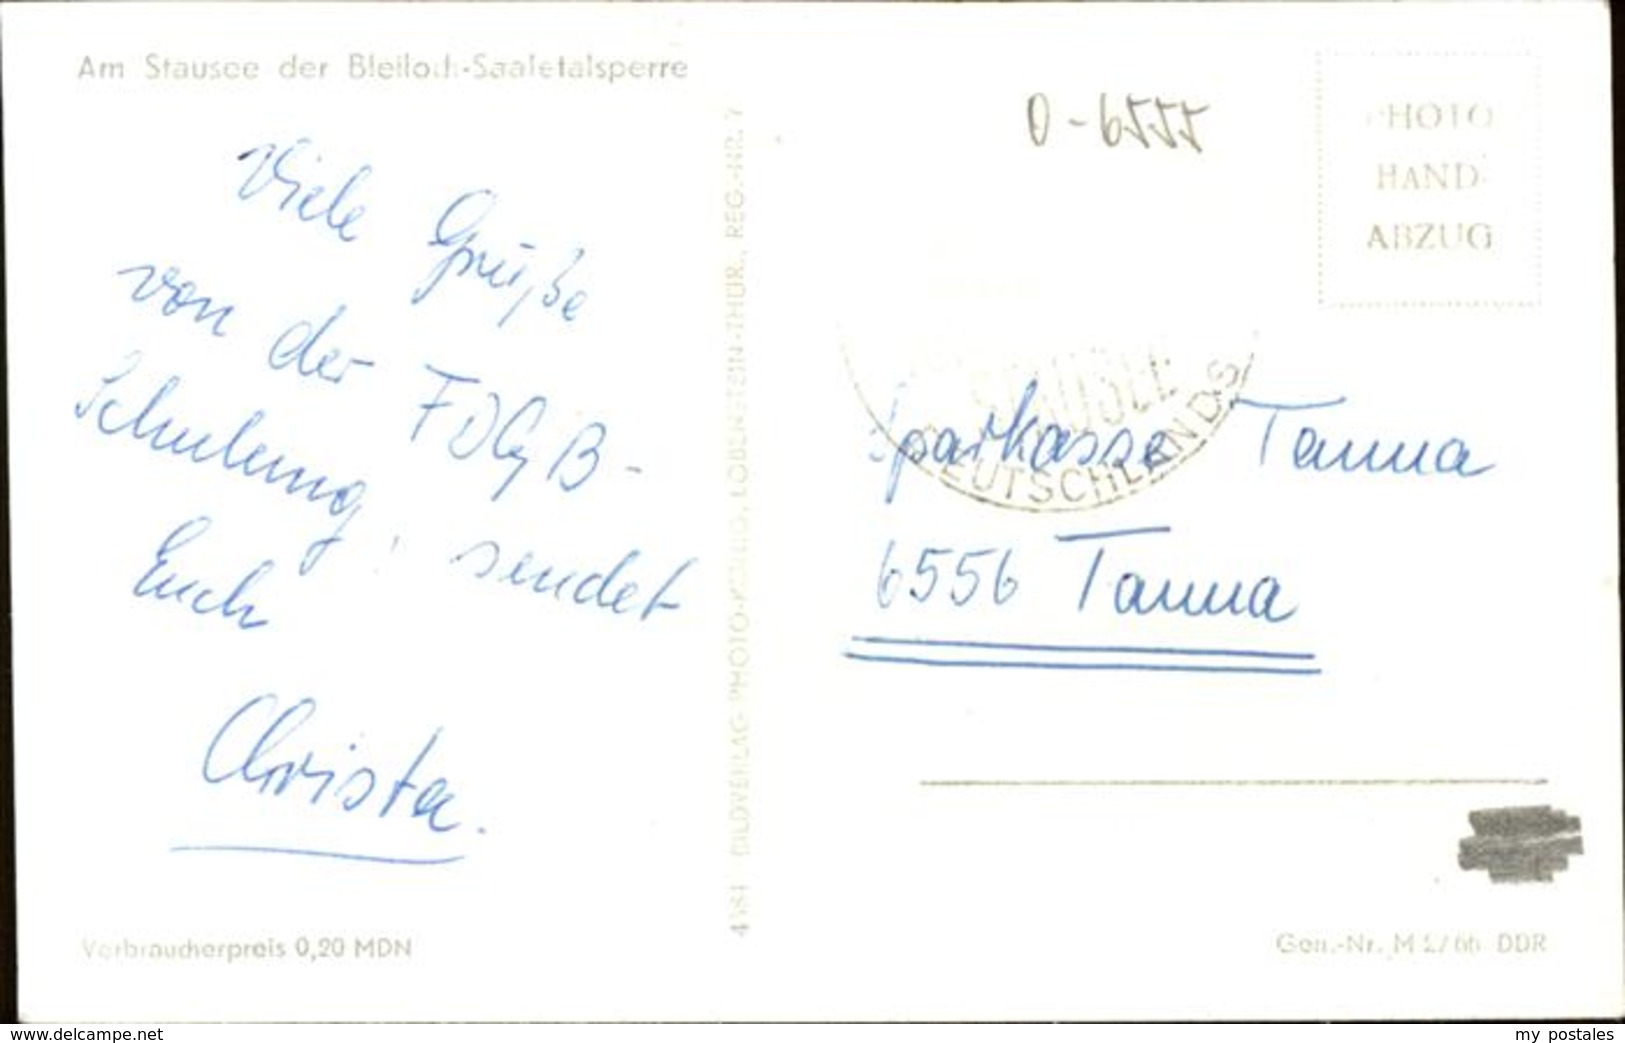 Am Stausee der Bleiloch-Saaletalsperre
Viele Grüße
von der FDGB-
Schulung sendet
Euch
Christa.
Verbraucherpreis 0,20 MDN
BILDVERLAG PHOTO-KÖNIG, LOBENSTEIN-THÜR., REG.-NR. 7
O-6555
PHOTO
HAND
ABZUG
STAUSEE
DEUTSCHLANDS
Sparkasse Tanna
6556 Tanna
Gen.-Nr. DDR
www.delcampe.net
my_postales